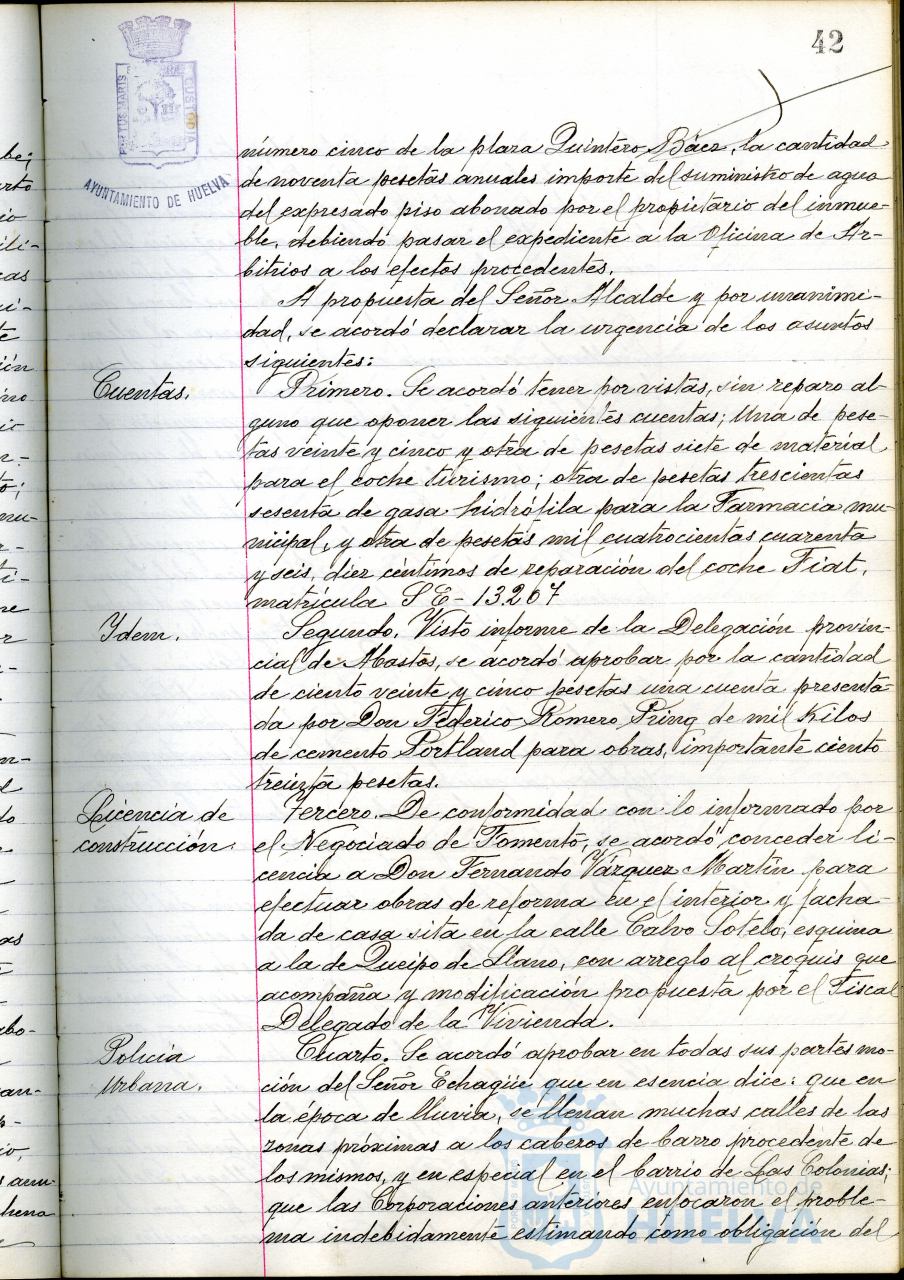 42
PORTUS MARIS CUSTODIA
AYUNTAMIENTO DE HUELVA
número cinco de la plaza Quintero Báez, la cantidad
de noventa pesetas anuales importe del suministro de agua
del expresado piso abonado por el propietario del inmue-
ble, debiendo pasar el expediente a la Oficina de Ar-
bitrios a los efectos procedentes.
A propuesta del Señor Alcalde y por unanimi-
dad, se acordó declarar la urgencia de los asuntos
siguientes:
Cuentas.
Primero. Se acordó tener por vistas, sin reparo al-
guno que oponer las siguientes cuentas; Una de pese-
tas veinte y cinco y otra de pesetas siete de material
para el coche turismo; otra de pesetas trescientas
sesenta de gasa hidrófila para la Farmacia mu-
nicipal, y otra de pesetas mil cuatrocientas cuarenta
y seis, diez céntimos de reparación del coche Fiat,
matrícula SE-13.267
Idem.
Segundo. Visto informe de la Delegación provin-
cial de Abastos, se acordó aprobar por la cantidad
de ciento veinte y cinco pesetas una cuenta presenta-
da por Don Federico Romero Pring de mil Kilos
de cemento Portland para obras, importante ciento
treinta pesetas.
Licencia de
construcción.
Tercero. De conformidad con lo informado por
el Negociado de Fomento, se acordó conceder li-
cencia a Don Fernando Vázquez Martín para
efectuar obras de reforma en el interior y facha-
da de casa sita en la calle Calvo Sotelo, esquina
a la de Queipo de Llano, con arreglo al croquis que
acompaña y modificación propuesta por el Fiscal
Delegado de la Vivienda.
Policía
Urbana.
Cuarto. Se acordó aprobar en todas sus partes mo-
ción del Señor Echagüe que en esencia dice: que en
la época de lluvia, se llenan muchas calles de las
zonas próximas a los cabezos de barro procedente de
los mismos, y en especial en el barrio de Las Colonias;
que las Corporaciones anteriores enfocaron el proble-
ma indebidamente estimando como obligación del
Ayuntamiento de
HUELVA